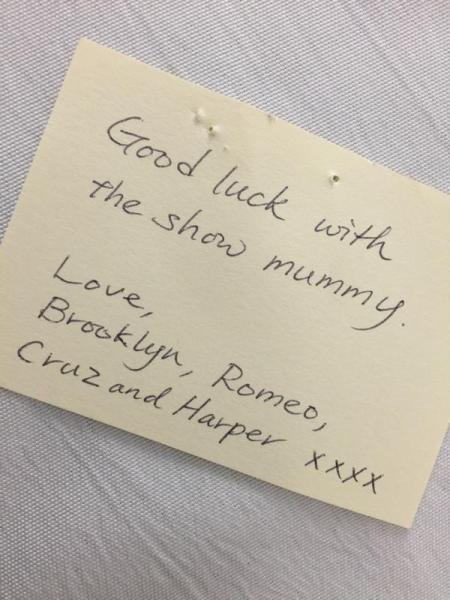 Good luck with
the show mummy.
Love,
Brooklyn, Romeo,
Cruz and Harper xxxx